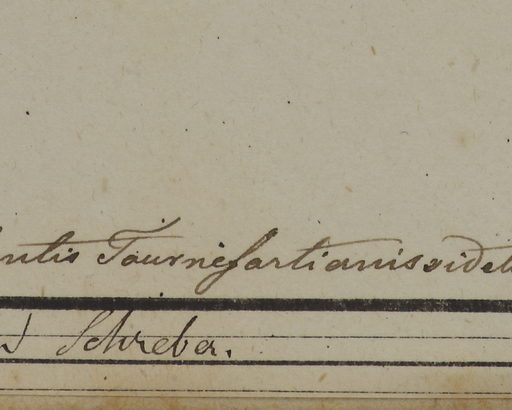 ntis Tournefortianis videt
Schreber.